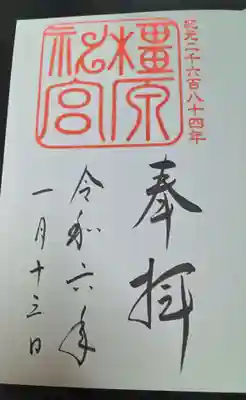 紀元二千六百八十四年
奉拝
橿原神宮
令和六年
一月十三日